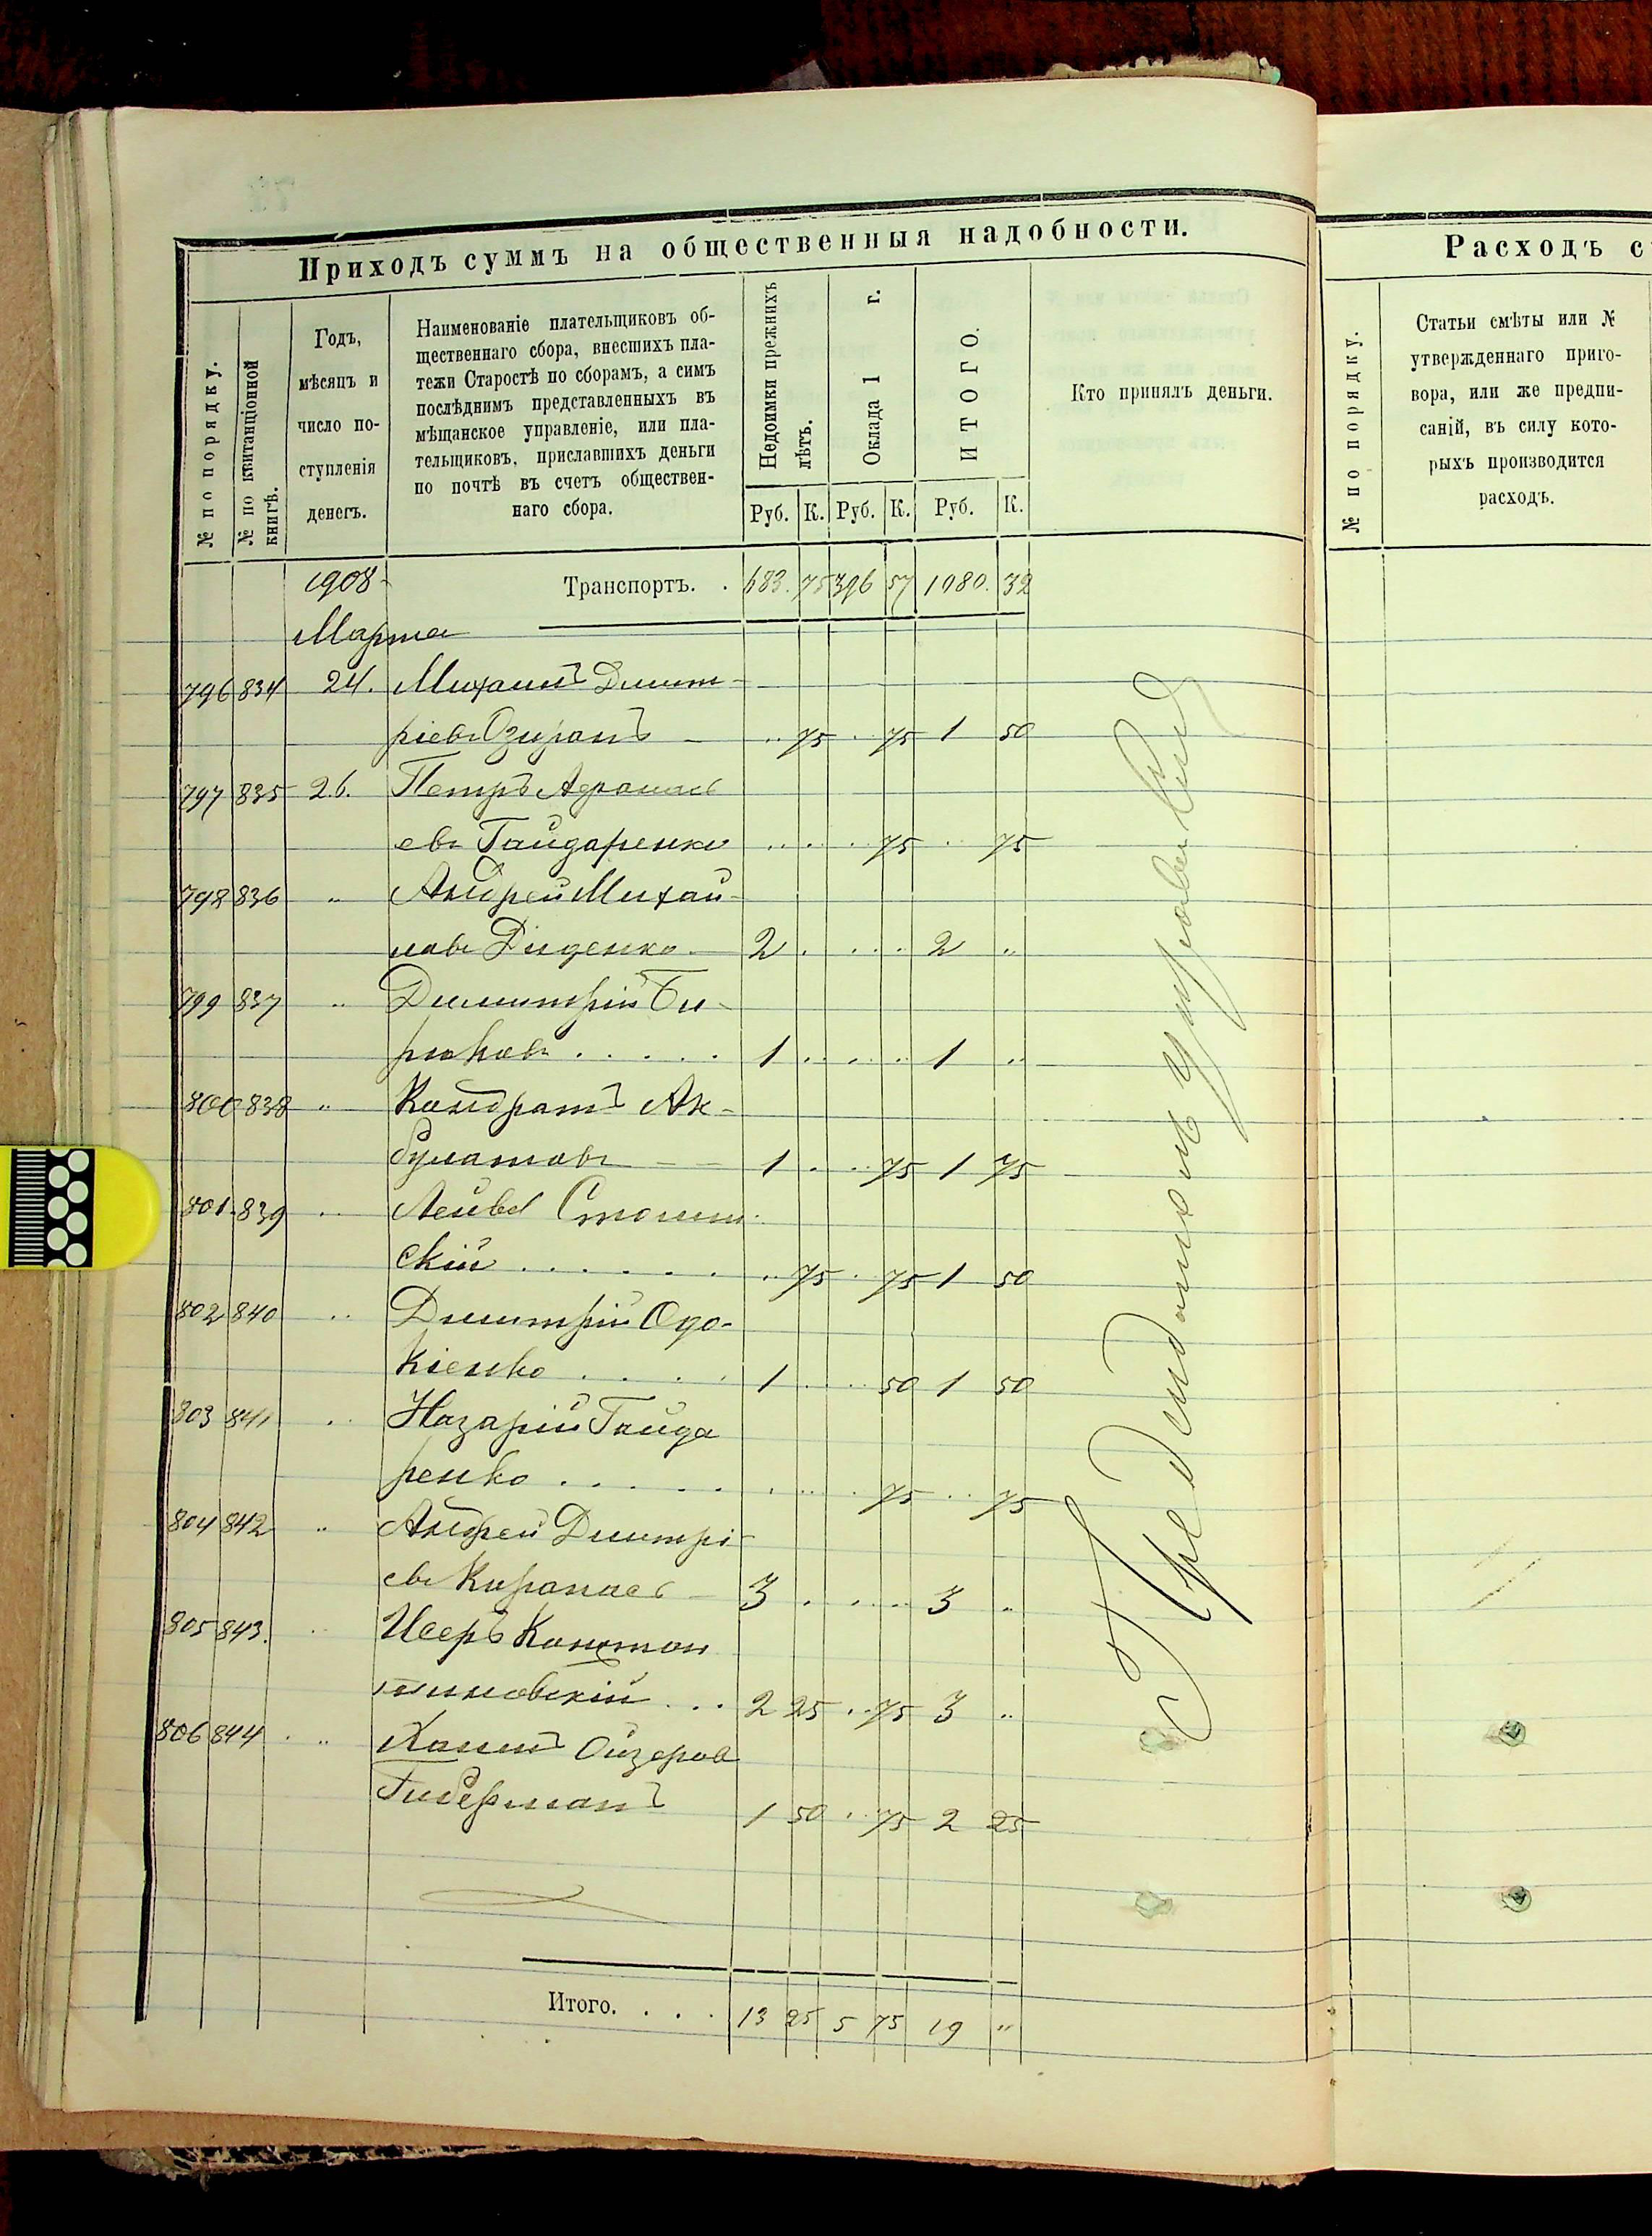 Приходъ суммъ на общественныя надобности.
№ по порядку.
№ по квитанціонной книгѣ.
Годъ,
мѣсяцъ и
число по-
ступленія
денегъ.
Наименованіе плательщиковъ об-
щественнаго сбора, внесшихъ пла-
тежи Старостѣ по сборамъ, а симъ
послѣднимъ представленныхъ въ
мѣщанское управленіе, или пла-
тельщиковъ, приславшихъ деньги
по почтѣ въ счетъ обществен-
наго сбора.
Недоимки прежнихъ лѣтъ.
Оклада 1 г.
ИТОГО.
Кто принялъ деньги.
Руб. К. Руб. К. Руб. К.
1908 Транспортъ. . 683. 75 396 57 1080. 32
Марта
796 834 24. Михаилъ Дмит-
ріевъ Озиранъ - .. 75 .. 75 1 50
797 835 26. Петръ Афанась
евъ Гайдаренко .. .. .. 75 .. 75
798 836 " Андрей Михай-
ловъ Диденко - 2 .. .. .. 2 "
799 837 " Димитрій Би-
рюковъ . . . . . 1 .. .. .. 1 "
800 838 " Кондратъ Ак-
булатовъ - - 1 .. .. 75 1 75
801 839 " Лейба
скій . . . . . . .. 75 .. 75 1 50
802 840 " Димитрій Одо-
кіенко . . . . 1 .. .. 50 1 50
803 841 " Назарій Гайда
ренко . . . . . .. .. .. 75 .. 75
804 842 " Андрей Дмитрі-
евъ - 3 .. .. .. 3 "
805 843. " Исеръ Констан
тиновскій . . . 2 25 .. 75 3 "
806 844 " Хаимъ Ойзеров
Гиберманъ 1 50 .. 75 2 25
Итого. . . . 13 25 5 75 19 "
Расходъ с
№ по порядку.
Статьи смѣты или №
утвержденнаго приго-
вора, или же предпи-
саній, въ силу кото-
рыхъ производится
расходъ.